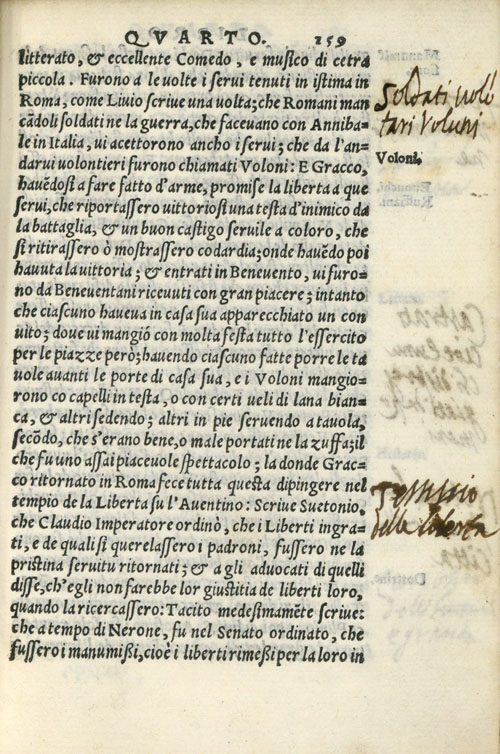 QVARTO. 159
litterato, & eccellente Comedo, e musico di cetra
piccola. Furono a le uolte i serui tenuti in istima in
Roma, come Liuio scriue una uolta; che Romani man
cãdoli soldati ne la guerra, che faceuano con Anniba=
le in Italia, ui acettorono ancho i serui; che da l'an=
darui uolontieri furono chiamati Voloni: E Gracco,
hauẽdosi a fare fatto d'arme, promise la liberta a que
serui, che riportassero uittoriosi una testa d'inimico da
la battaglia, & un buon castigo seruile a coloro, che
si ritirassero ò mostrassero codardia; onde hauẽdo poi
hauuta la uittoria; & entrati in Beneuento, ui furo=
no da Beneuentani riceuuti con gran piacere; intanto
che ciascuno haueua in casa sua apparecchiato un con
uito; doue ui mangiò con molta festa tutto l'essercito
per le piazze però; hauendo ciascuno fatte porre le ta
uole auanti le porte di casa sua, e i Voloni mangio=
rono co capelli in testa, o con certi ueli di lana bian=
ca, & altri sedendo; altri in pie seruendo a tauola,
secõdo, che s'erano bene, o male portati ne la zuffa; il
che fu uno assai piaceuole spettacolo; la donde Grac=
co ritornato in Roma fece tutta questa dipingere nel
tempio de la Liberta su l'Auentino: Scriue Suetonio,
che Claudio Imperatore ordinò, che i Liberti ingra=
ti, e de quali si querelassero i padroni, fussero ne la
pristina seruitu ritornati; & a gli aduocati di quelli
disse, ch'egli non farebbe lor giustitia de liberti loro,
quando la ricercassero: Tacito medesimamẽte scriue:
che a tempo di Nerone, fu nel Senato ordinato, che
fussero i manumißi, cioè i liberti rimeßi per la loro in
Soldati uolõ
tari Voluni
Voloni.
delle liberta